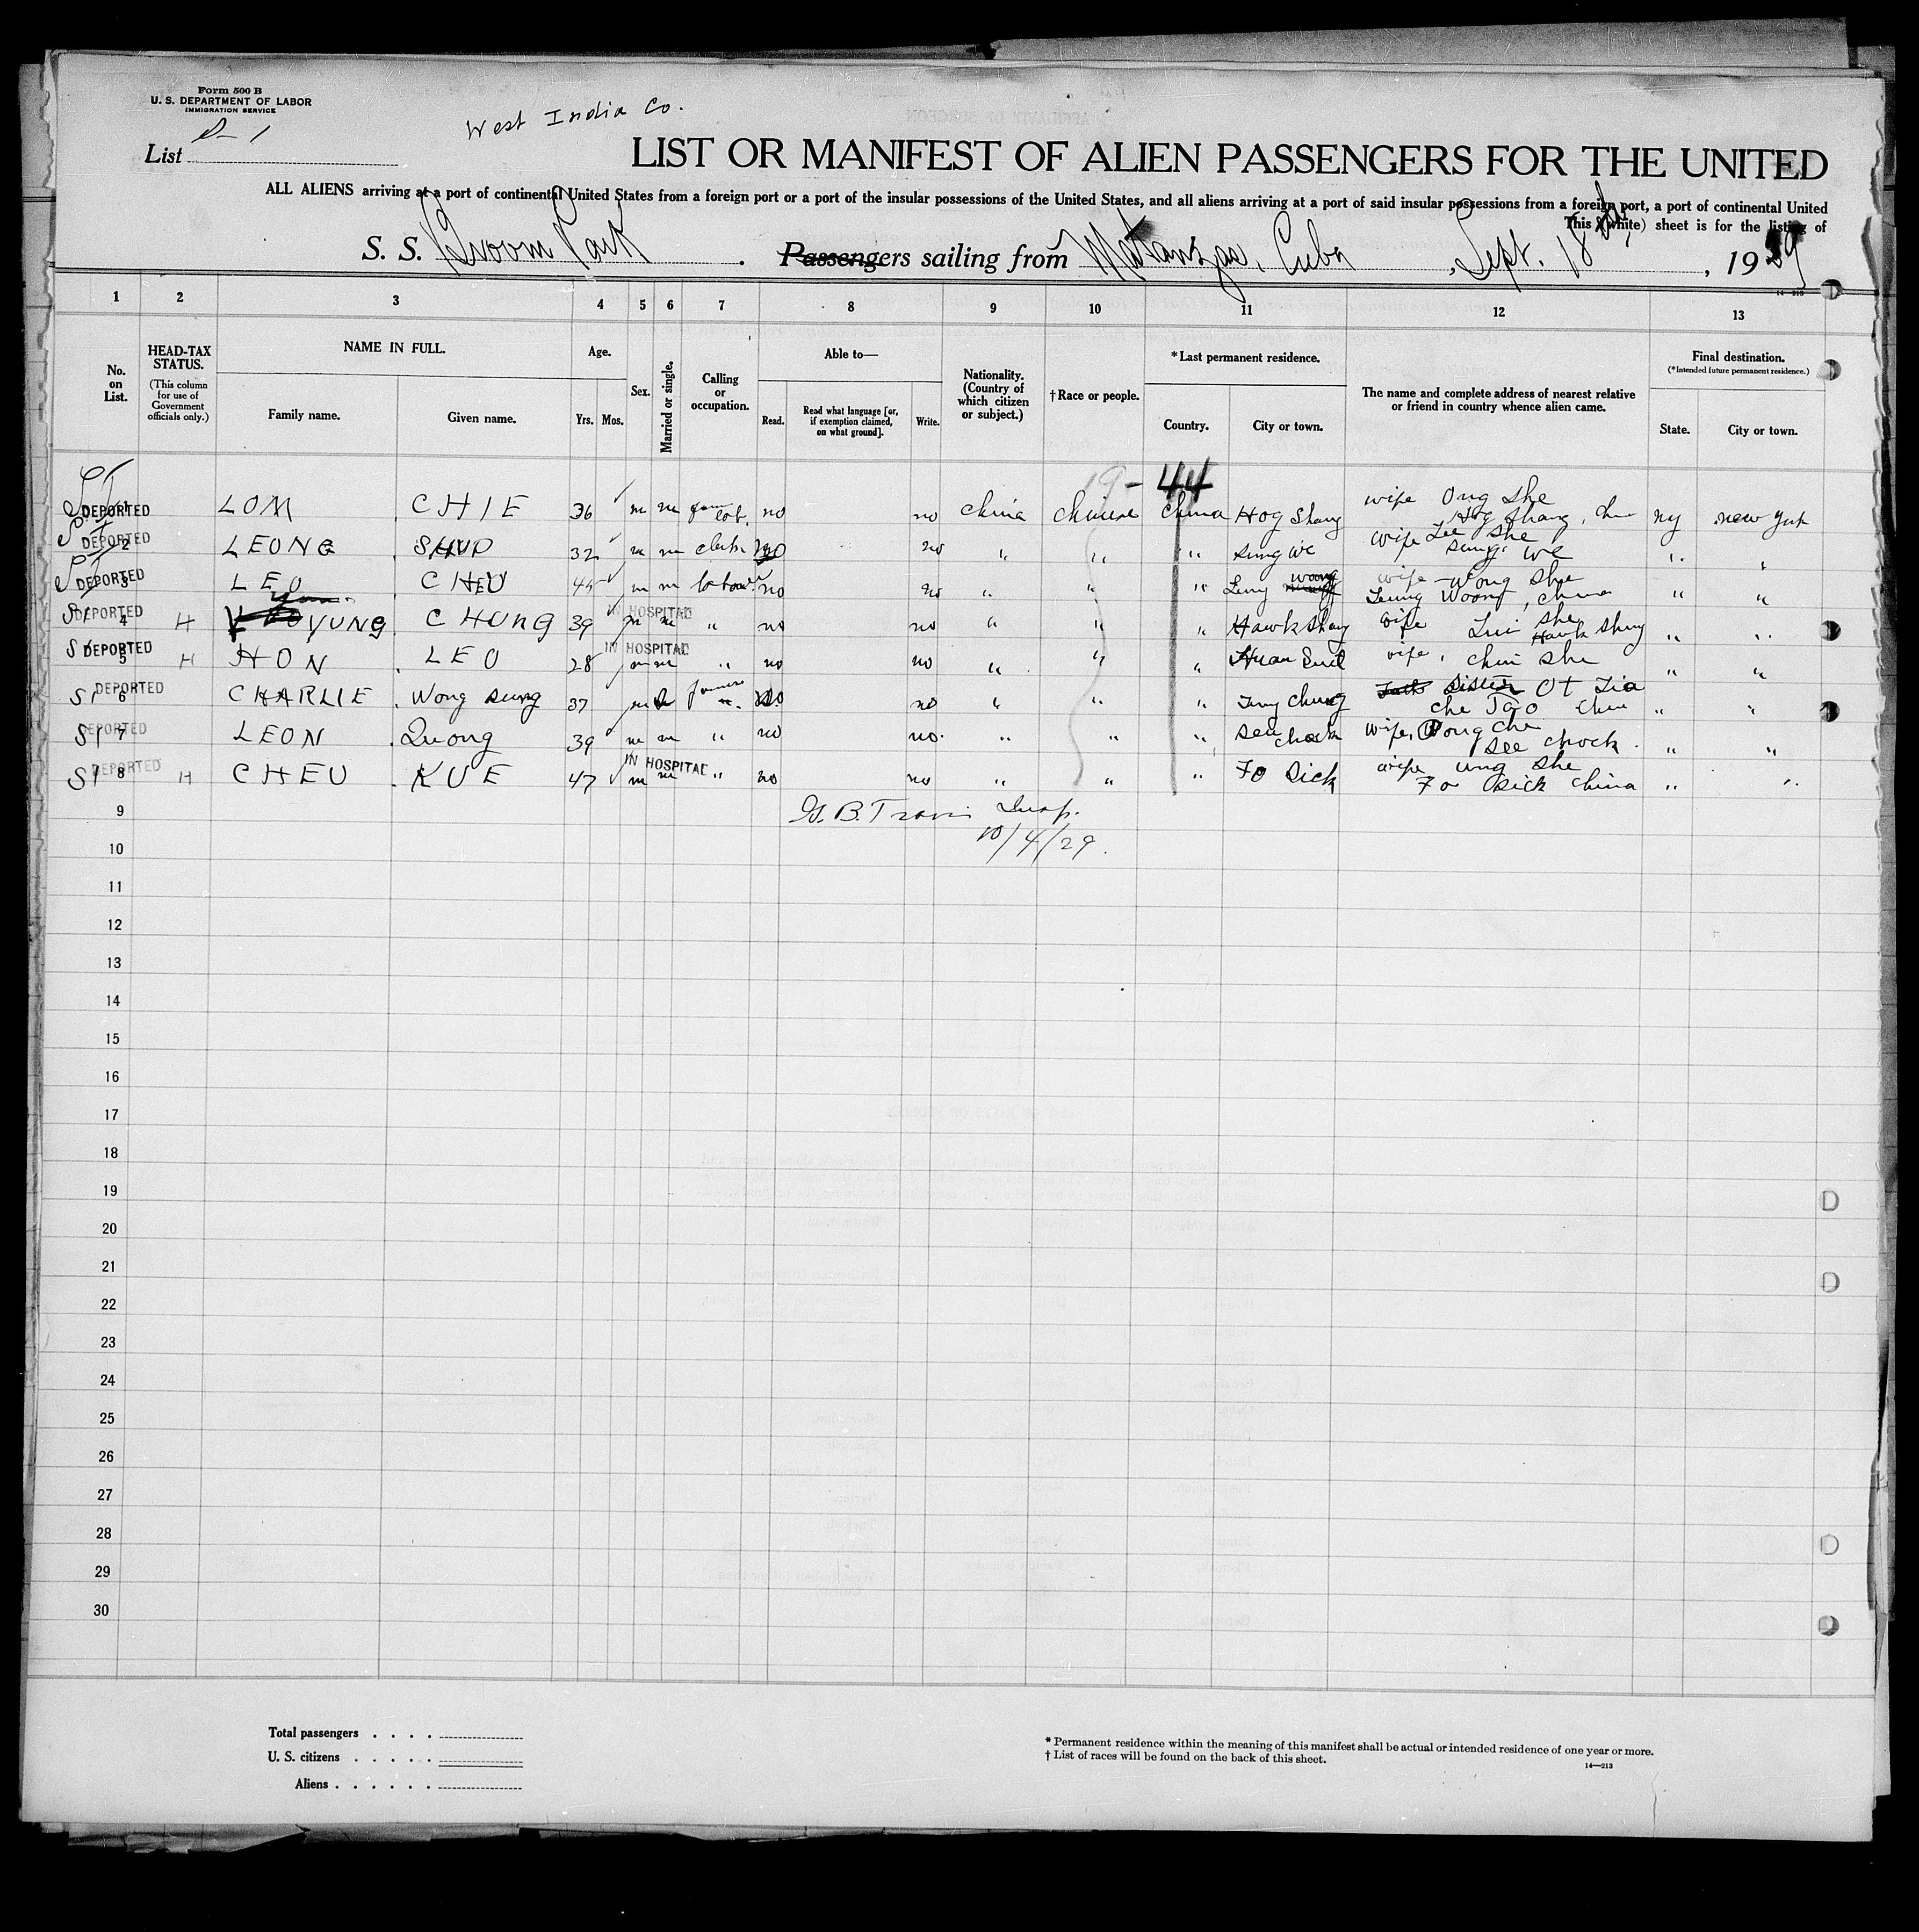 Form 500 B
U. S. DEPARTMENT OF LABOR
IMMIGRATION SERVICE
West India Co.
List
LIST OR MANIFEST OF ALIEN PASSENGERS FOR THE UNITED
ALL ALIENS arriving at a port of continental United States from a foreign port or a port of the insular possessions of the United States, and all aliens arriving at a port of said insular possessions from a foreign port, a port of continental United
This (white) sheet is for the listing of
S. S. Broom Park. Passengers sailing from Matanzas, Cuba, Sept. 18th, 1929
14—213
1 2 3 4 5 6 7 8 9 10 11 12 13
No. on List.
HEAD-TAX STATUS.
(This column for use of Government officials only.)
NAME IN FULL.
Family name. Given name.
Age.
Yrs. Mos.
Sex.
Married or single.
Calling or occupation.
Able to—
Read. Read what language [or, if exemption claimed, on what ground]. Write.
Nationality. (Country of which citizen or subject.)
† Race or people.
* Last permanent residence.
Country. City or town.
The name and complete address of nearest relative or friend in country whence alien came.
Final destination.
(*Intended future permanent residence.)
State. City or town.
19- 44
DEPORTED 1 LOM CHIE 36 m m no no China Chinese China Hog Shang wife Ong She Hog Shang, ny new york
DEPORTED 2 LEONG SHUP 32 m m no no " " " Sung We wife Lee She Sung We " "
DEPORTED 3 LEO CHEU 45 m m no no " " " Leung Woong wife - Wong She Leung Woong, China " "
SI DEPORTED 4 H YUNG CHUNG 39 IN HOSPITAL m m " no no " " " Hawk Shang wife Lui She Hawk Shung " "
SI DEPORTED 5 H HON LEO 28 IN HOSPITAL m m " no no " " " wife, Chin She " "
SI DEPORTED 6 CHARLIE Wong Sung 37 m no no " " " Sister " "
SI DEPORTED 7 LEON Quong 39 m m " no no " " " See Chock wife, See Chock " "
SI DEPORTED 8 H CHEU KUE 47 IN HOSPITAL m m " no no " " " Fo Sick wife Ung She Fo Sick China " "
9 Insp.
10 10/4/29.
11
12
13
14
15
16
17
18
19
20
21
22
23
24
25
26
27
28
29
30
Total passengers
U. S. citizens
Aliens
* Permanent residence within the meaning of this manifest shall be actual or intended residence of one year or more.
† List of races will be found on the back of this sheet.
14—213